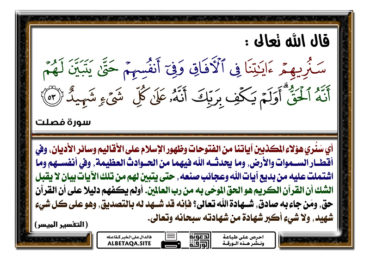 قال الله تعالى :
سَنُرِيهِمْ ءَايَٰتِنَا فِي ٱلْأَفَاقِ وَفِيٓ أَنفُسِهِمْ حَتَّىٰ يَتَبَيَّنَ لَهُمْ
أَنَّهُ ٱلْحَقُّ ۗ أَوَلَمْ يَكْفِ بِرَبِّكَ أَنَّهُۥ عَلَىٰ كُلِّ شَيْءٍ شَهِيدٌ ٥٣
سورة فصلت
أي سنُري هؤلاء المكذبين آياتنا من الفتوحات وظهور الإسلام على الأقاليم وسائر الأديان، وفي
أقطار السموات والأرض، وما يحدثه الله فيهما من الحوادث العظيمة، وفي أنفسهم وما
اشتملت عليه من بديع آيات الله وعجائب صنعه، حتى يتبين لهم من تلك الآيات بيان لا يقبل
الشك أن القرآن الكريم هو الحق الموحَى به من رب العالمين. أولم يكفهم دليلا على أن القرآن
حق، ومن جاء به صادق، شهادة الله تعالى؟ فإنه قد شهد له بالتصديق، وهو على كل شيء
شهيد، ولا شيء أكبر شهادة من شهادته سبحانه وتعالى.
(التفسير الميسر)
احرص على طباعة
ونشر هذه الورقة
الدال على الخير كفاعله
ALBETAQA.SITE